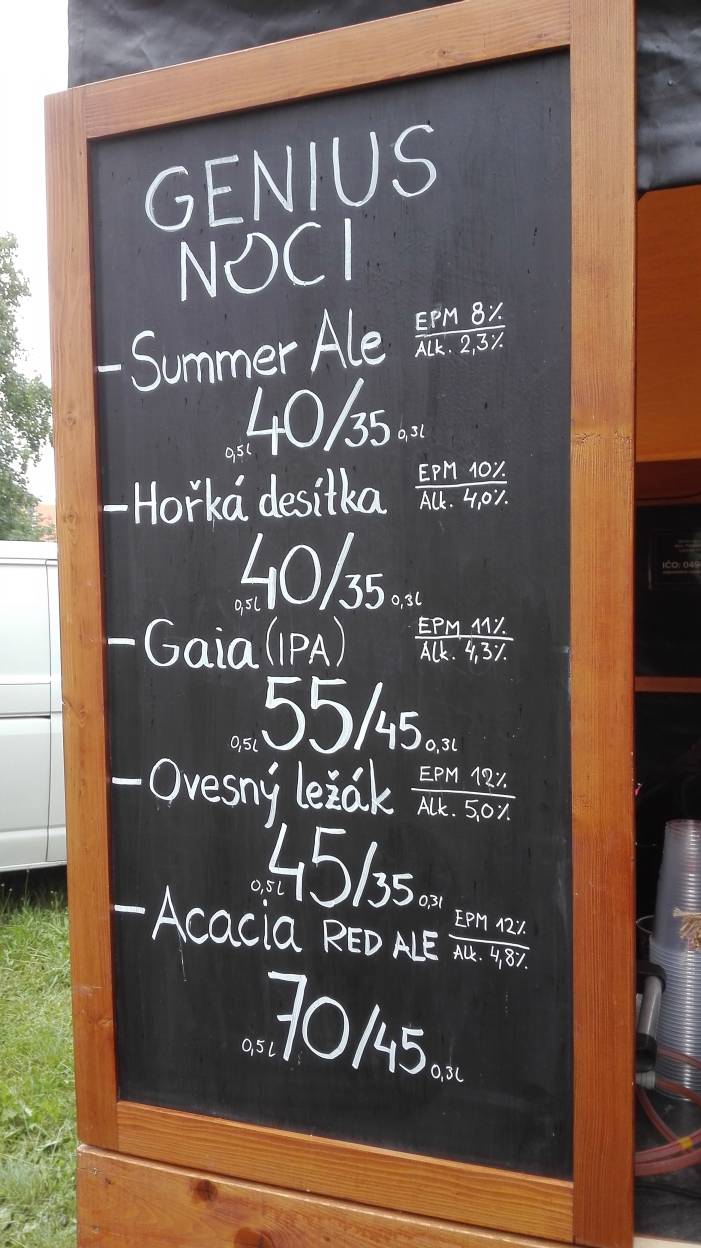 GENIUS
NOCI
- Summer Ale EPM 8%
Alk. 2,3%
0,5l 40/35 0,3l
- Hořká desítka EPM 10%
Alk. 4,0%
0,5l 40/35 0,3l
- Gaia (IPA) EPM 11%
Alk. 4,3%
0,5l 55/45 0,3l
- Ovesný ležák EPM 12%
Alk. 5,0%
0,5l 45/35 0,3l
- Acacia RED ALE EPM 12%
Alk. 4,8%
0,5l 70/45 0,3l
IČO: